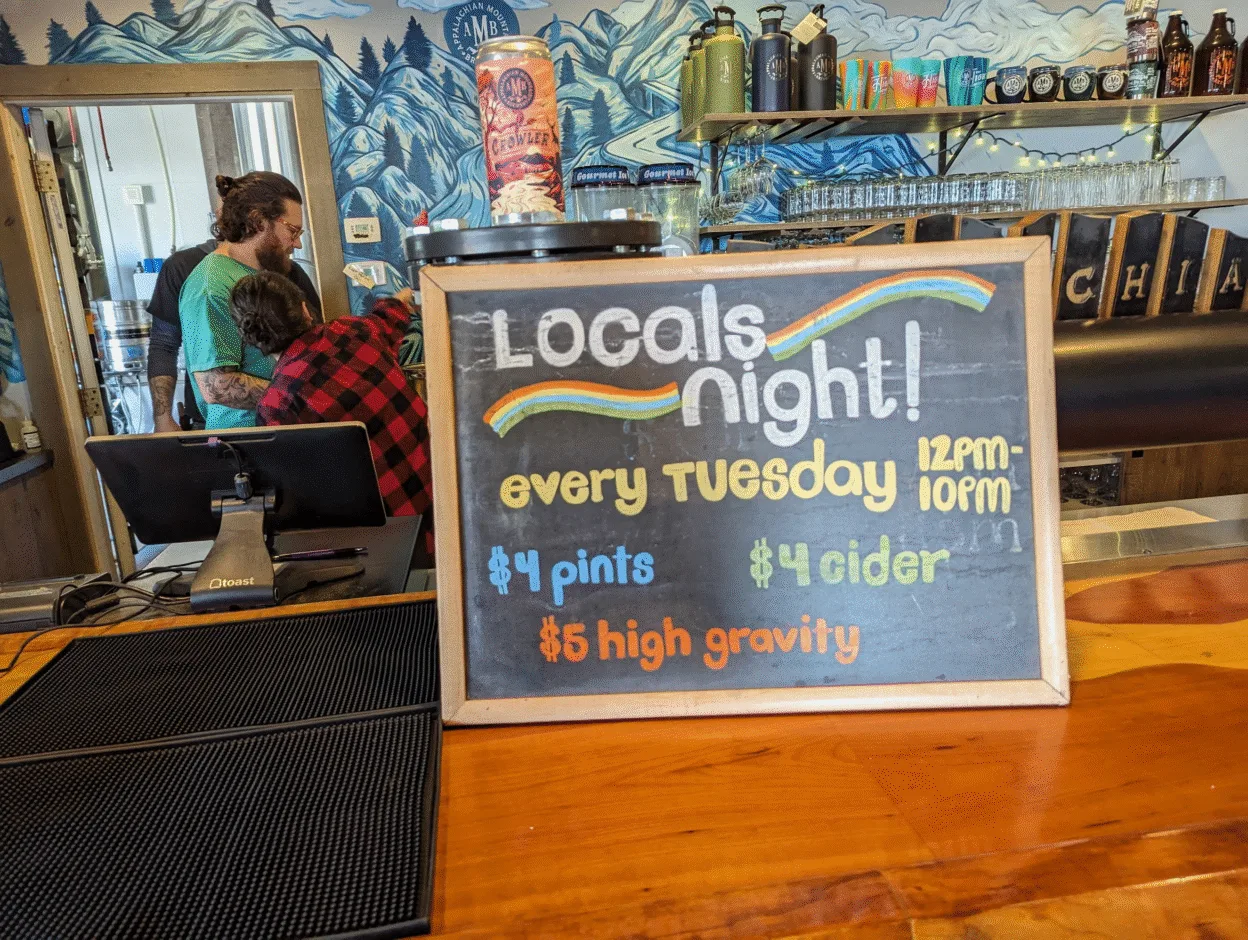 APPALACHIAN MOUNT
AMB
AMB
CROWLER
Gourmet
Gourmet
CHIA
Locals
night!
every Tuesday
12PM-
10PM
$4 pints
$4 cider
$5 high gravity
toast